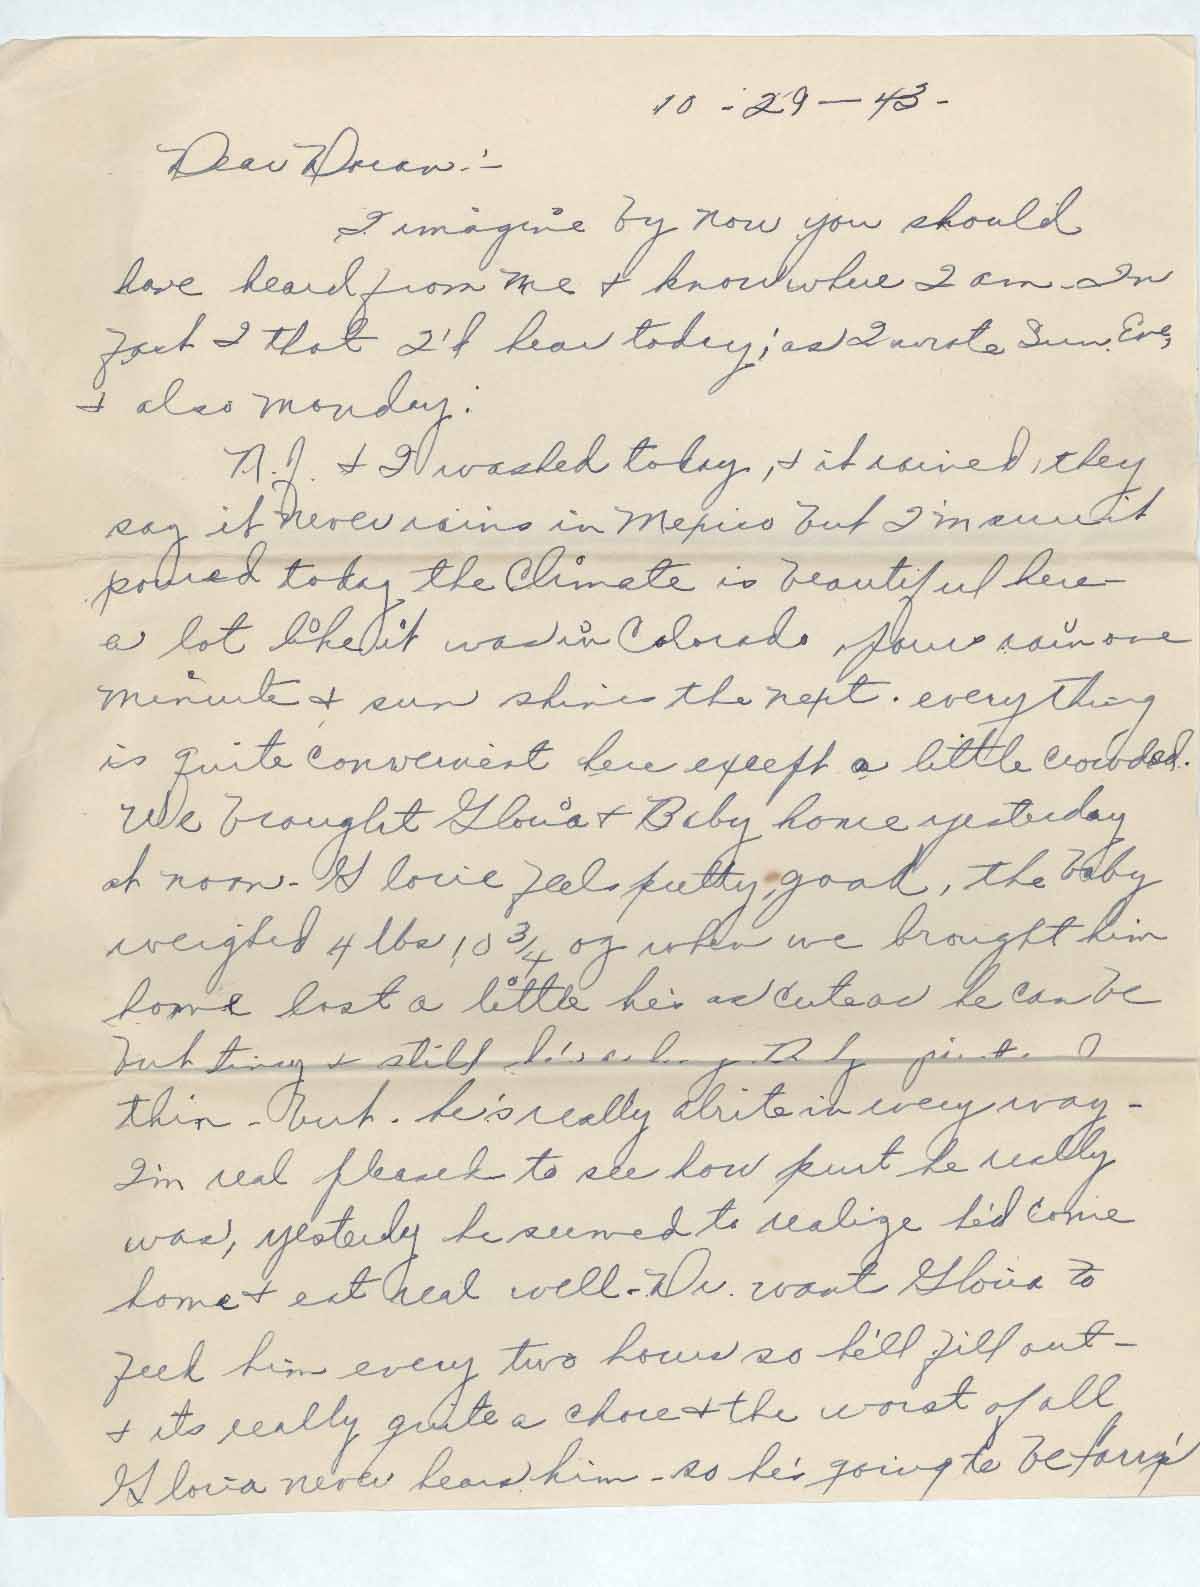 10 - 29 - 43 -
Dear Doran:-
I imagine by now you should
have heard from me & know where I am - In
fact I that I'd hear today; as I wrote Sun. Eve,
& also Monday.
N.J. & I washed today, & it rained, they
say it never rains in Mexico but I'm sure it
poured today the Climate is beautiful here -
a lot like it was in Colorado, pours rain one
minute & sun shines the next. everything
is quite convenient here except a little crowded.
We brought Gloria & Baby home yesterday
at noon - Glorie feels pretty, good, the baby
weighed 4 lbs 10 3/4 oz when we brought him
home lost a little he's as cute as he can be
but tiny & still he's a
thin - but. he's really alrite in every way -
I'm real pleased to see how purt he really
was, yesterdy he seemed to realize he'd come
home & eat real well - Dr. want Gloria to
feed him every two hours so he'll fill out -
& its really quite a chore & the worst of all
Gloria never hears him - so he's going to be